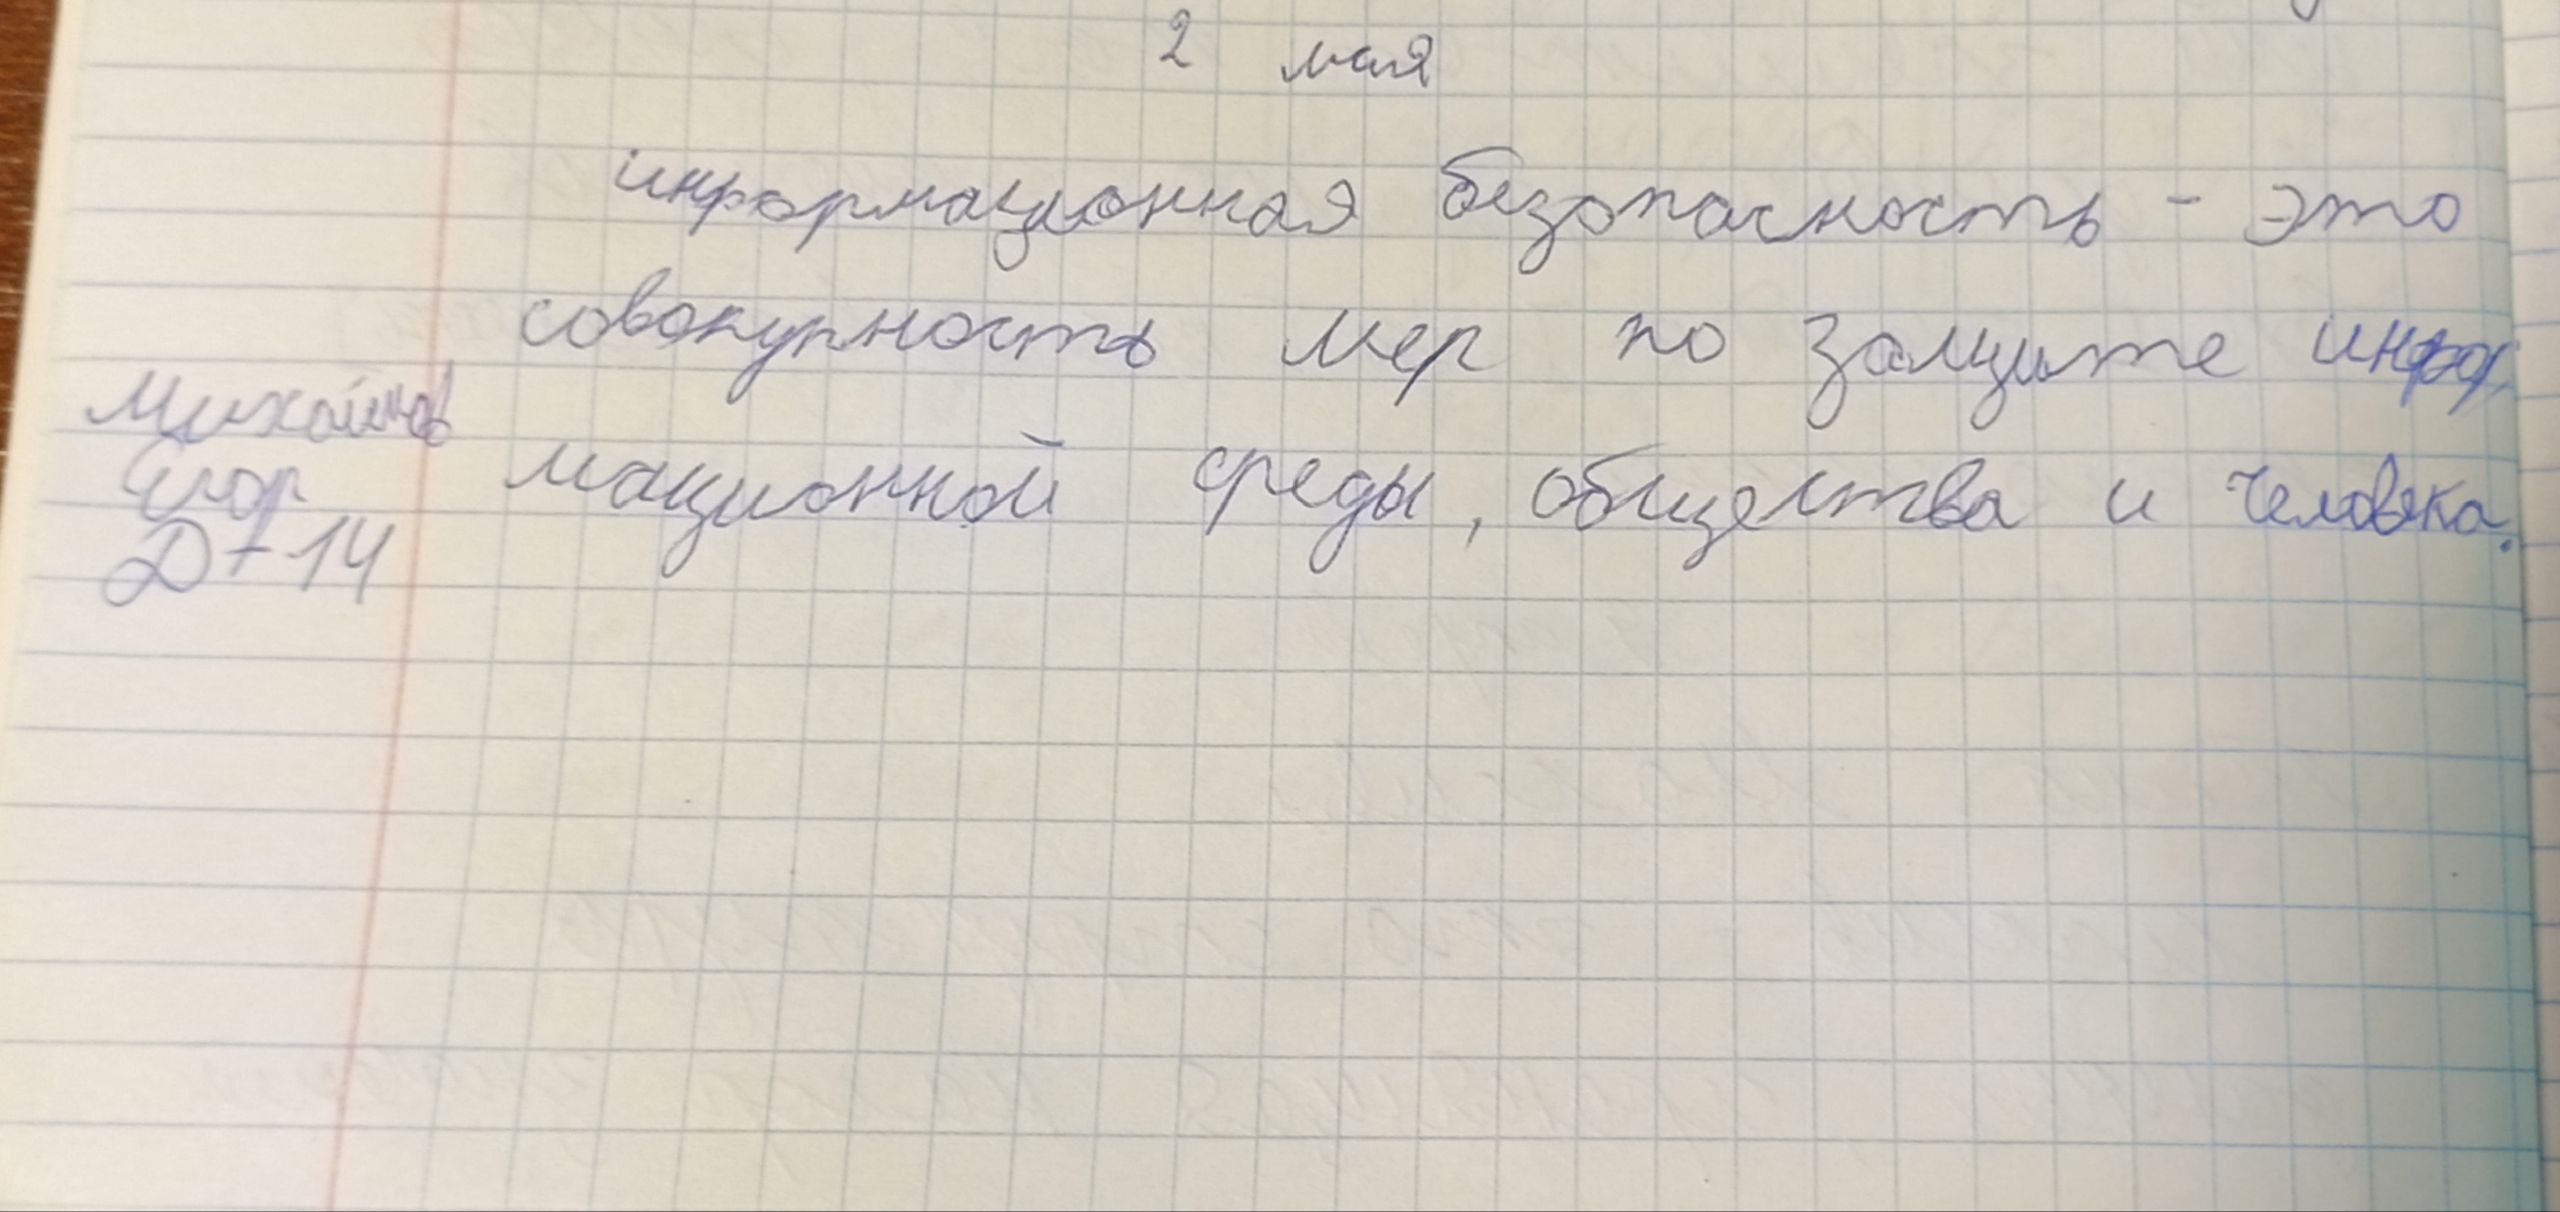 2 мая
информационная безопасность - это
совокупность мер по защите инфор
мационной среды, общества и человека.
Михайлов
Егор
Д-14